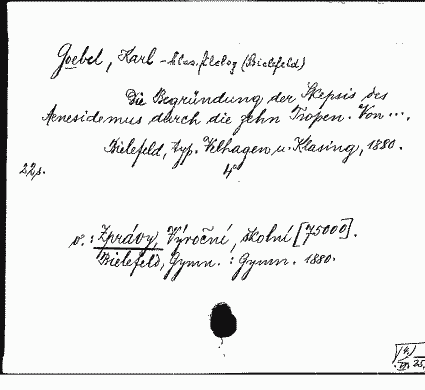 Goebel, Karl - klas. filolog (Bielefeld)
Die Begründung der Skepsis des
Aenesidemus durch die zehn Tropen. Von ...,
Bielefeld, typ. Velhagen u. Klasing, 1880.
22 s. 4°
v.: Zprávy, Výroční, školní [75000].
Bielefeld, Gymn. : Gymn. 1880.